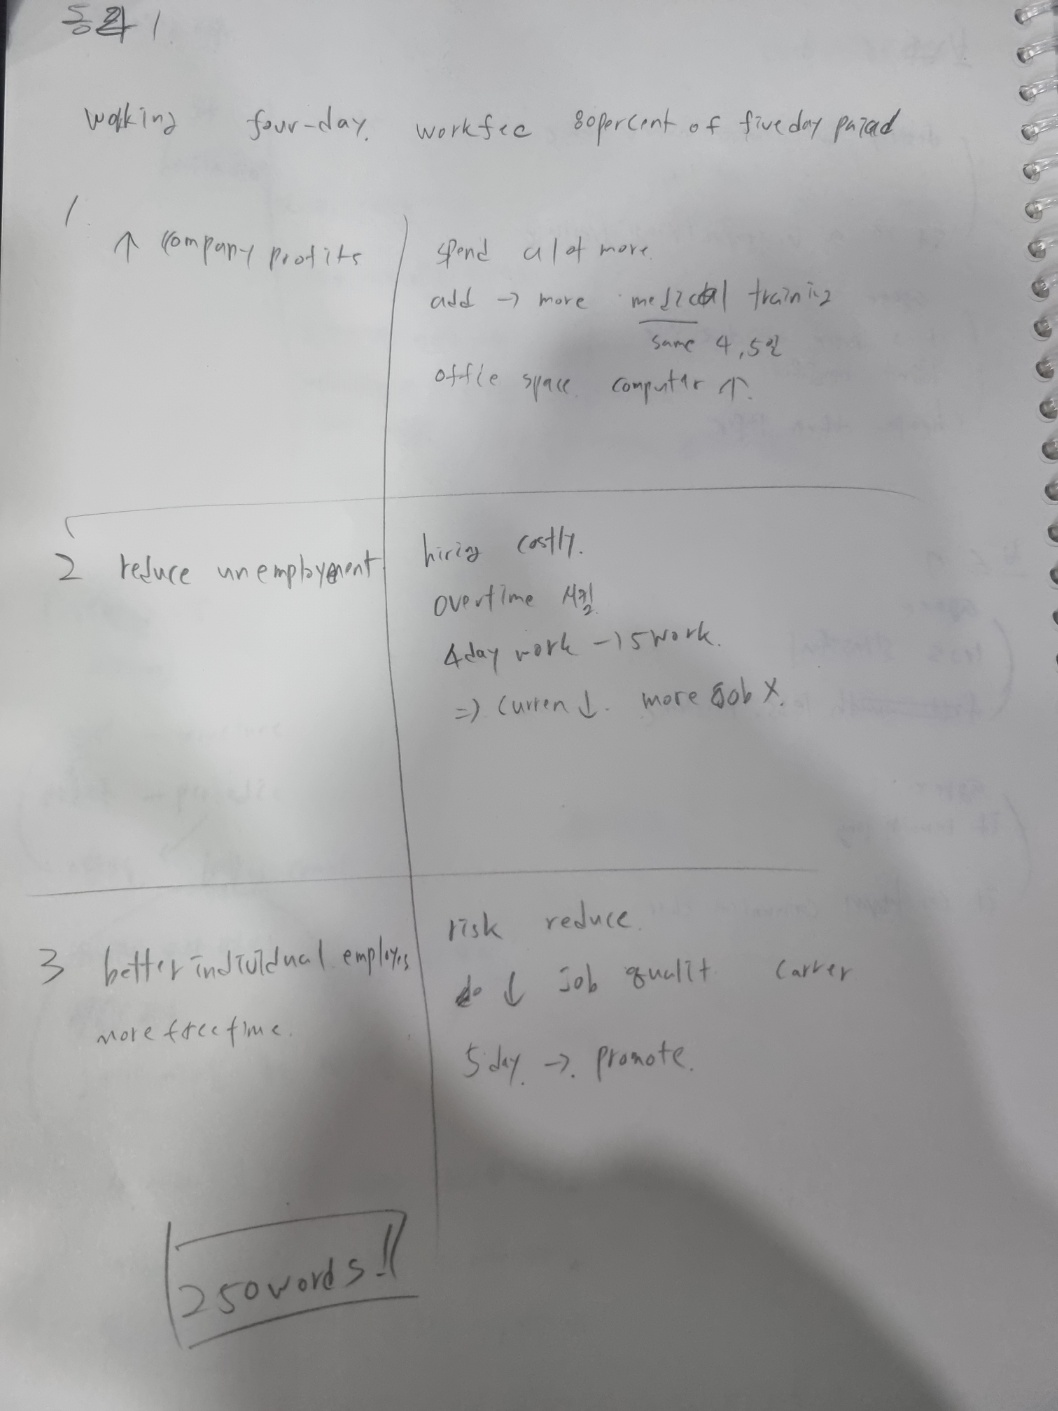 통화 1.
working four-day. workfee 80percent of fiveday paiad
1
↑ company profits
spend a lot more.
add → more medical training
same 4,5일
offie space. computer ↑.
2 reduce unemployment
hiring costly.
overtime 시킴
4day work → 5work.
⇒ curren ↓. more Job X.
3 better individual employes
more freetime.
risk reduce.
↓ Job qualit carrer
5day. →. promote.
250words!!